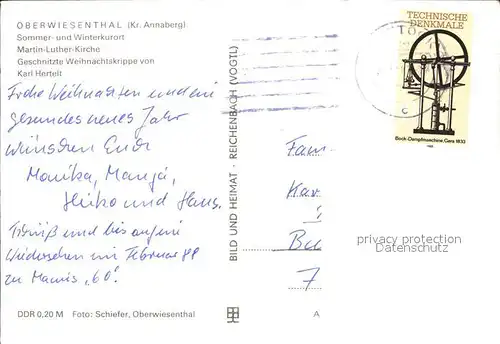 OBERWIESENTHAL (Kr. Annaberg)
Sommer- und Winterkurort
Martin-Luther-Kirche
Geschnitzte Weihnachtskrippe von
Karl Hertelt
Frohe Weihnachten und ein
gesundes neues Jahr
wünschen Euch
Monika, Manja,
Heiko und Hans.
Tschüß und bis auf ein
Wiedersehen im Februar 88
zu Mamis "60".
DDR 0,20 M Foto: Schiefer, Oberwiesenthal
BILD UND HEIMAT · REICHENBACH (VOGTL)
A
TECHNISCHE
DENKMALE
Bock-Dampfmaschine, Gera 1833
c
Fam
Kar
7
privacy protection
Datenschutz